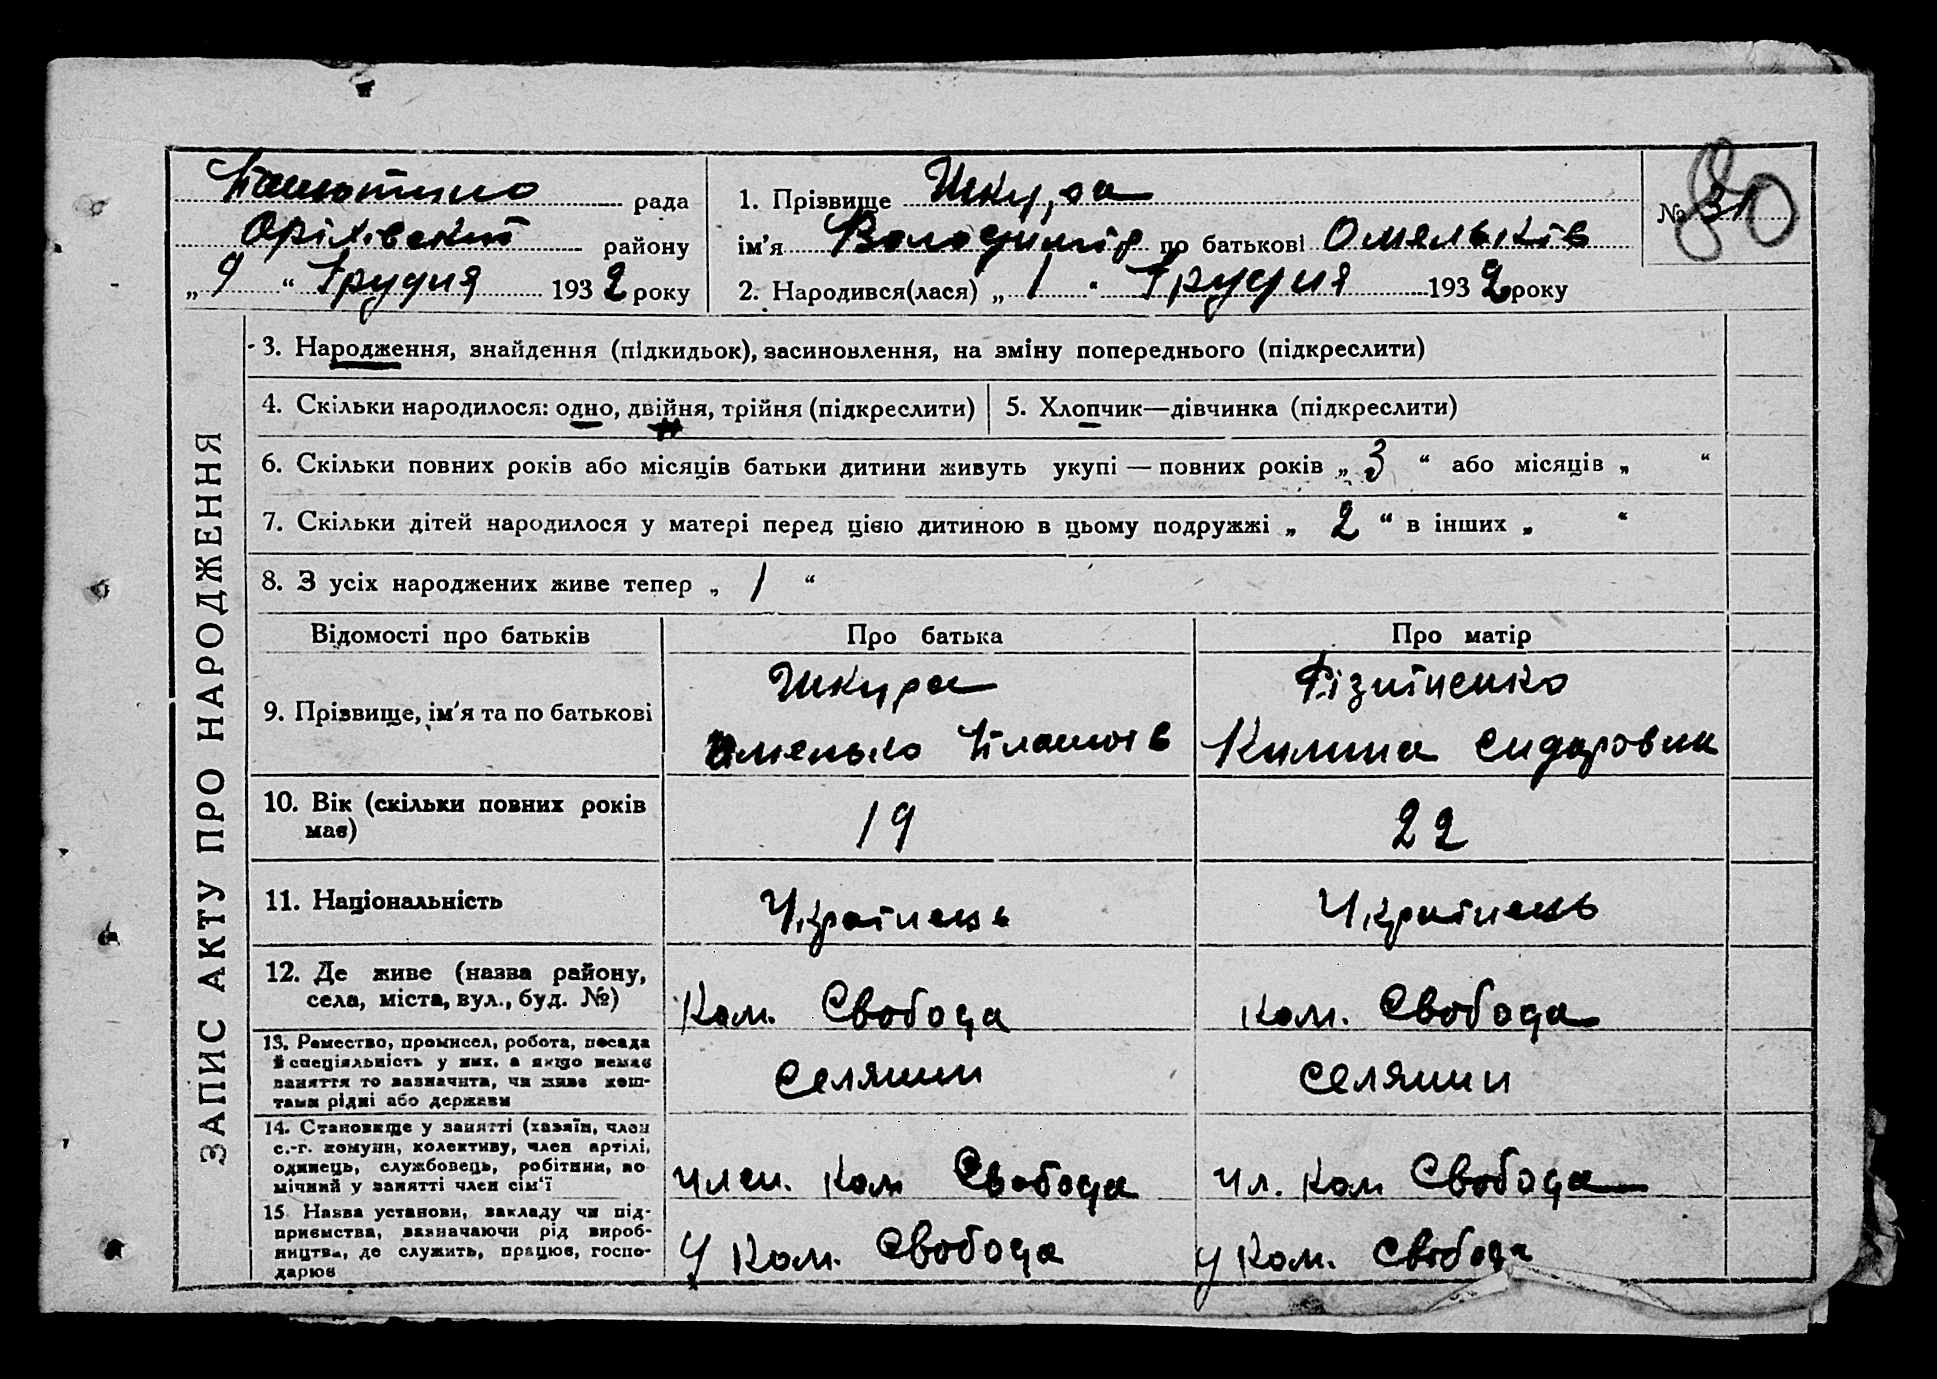 рада
Оріхівский району
„ 9 “ Грудня 1932 року
1. Прізвище Шкура
ім'я Володимір по батькові Омельків
2. Народився(лася) „ 1 “ Грудня 1932 року
№ 31
80
ЗАПИС АКТУ ПРО НАРОДЖЕННЯ
3. Народження, знайдення (підкидьок), засиновлення, на зміну попереднього (підкреслити)
4. Скільки народилося: одно, двійня, трійня (підкреслити)
5. Хлопчик—дівчинка (підкреслити)
6. Скільки повних років або місяців батьки дитини живуть укупі — повних років „ 3 “ або місяців „ “
7. Скільки дітей народилося у матері перед цією дитиною в цьому подружжі „ 2 “ в інших „ “
8. З усіх народжених живе тепер „ 1 “
Відомості про батьків
Про батька
Про матір
9. Прізвище, ім'я та по батькові
Шкура
Омелько
Килина Сидоровна
10. Вік (скільки повних років
має)
19
22
11. Національність
Українець
Українець
12. Де живе (назва району,
села, міста, вул., буд. №)
Ком. Свобода
ком. Свобода
13. Ремество, промисел, робота, посада
й спеціяльність у них, а якщо немає
заняття то зазначити, чи живе кош-
тами рідні або держави
Селянин
Селянин
14. Становище у занятті (хазяїн, член
с.-г. комуни, колективу, член артілі,
одинець, службовець, робітник, по-
мічний у занятті член сім'ї
член. Ком Свобода
чл. Ком Свобода
15. Назва установи, закладу чи під-
приємства, зазначаючи рід вироб-
ництва, де служить, працює, госпо-
дарює
У Ком. Свобода
у Ком. Свобода